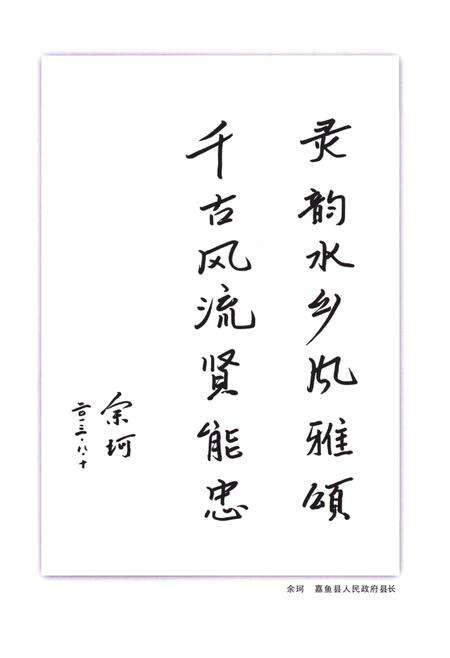 灵韵水乡风雅颂
千古风流贤能忠
余珂
二〇一三·八·十
余珂 嘉鱼县人民政府县长